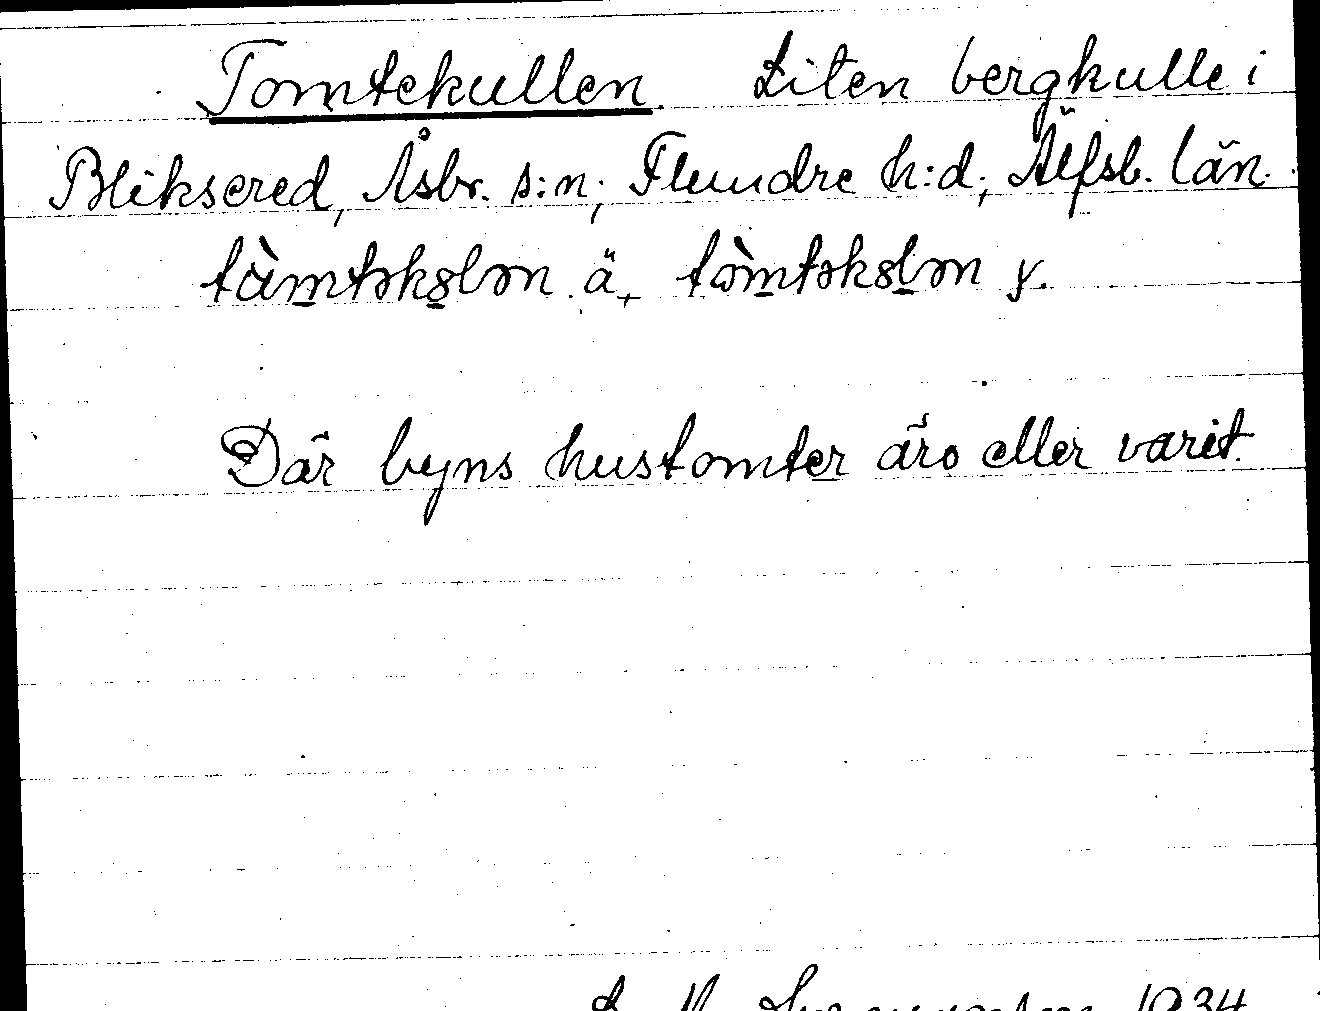 Tomtekullen. Liten bergkulle i
Bliksered, Åsbr. s:n; Flundre h:d; Älfsb. län.
tàmtəkɵlən ä, tòmtəkɵlən y.
Där byns hustomter äro eller varit.
1934